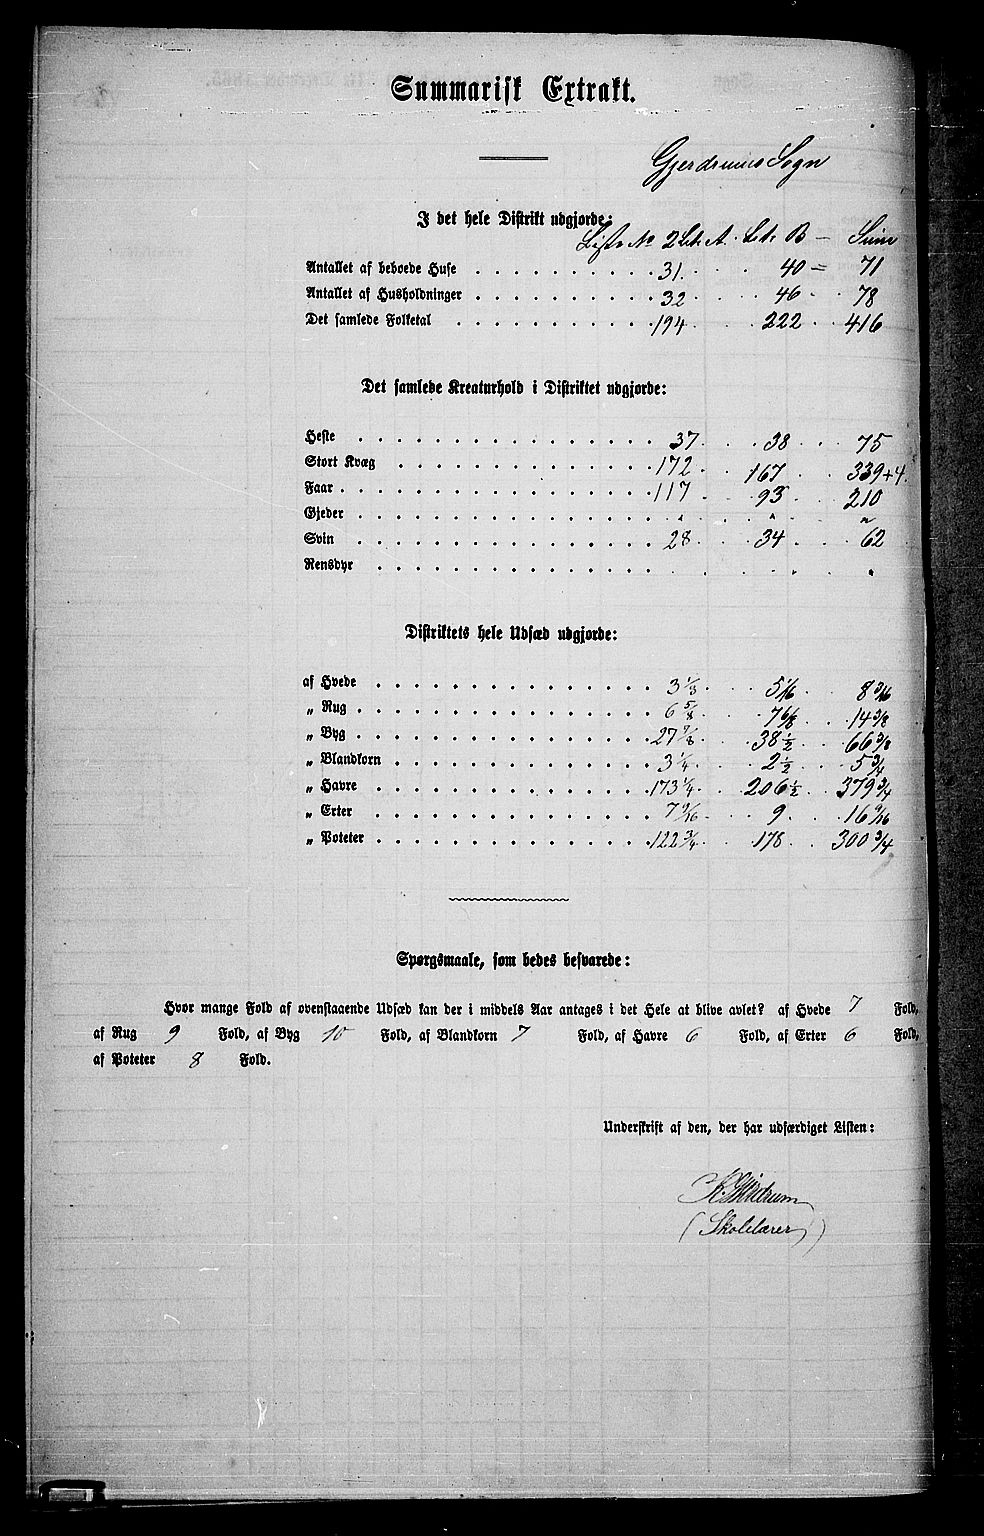 Summarisk Extrakt.
Gjerdrums Sogn
I det hele Distrikt udgjorde:
Liste No 2 Lit. A. Lit. B – Sum
Antallet af beboede Huse 31. 40 = 71
Antallet af Husholdninger 32 46 78
Det samlede Folketal 194 222 416
Det samlede Kreaturhold i Distriktet udgjorde:
Heste 37 38 75
Stort Kvæg 172 167 339+4.
Faar 117 93 210
Gjeder " " "
Svin 28 34 62
Rensdyr
Distriktets hele Udsæd udgjorde:
af Hvede 3 1/8 5 1/16 8 3/16
„ Rug 6 5/8 7 6/8 14 3/8
„ Byg 27 7/8 38 1/2 66 3/8
„ Blandkorn 3 1/4 2 1/2 5 3/4
„ Havre 173 1/4 206 1/2 379 3/4
„ Erter 7 9/16 9 16 9/16
„ Poteter 122 3/4 178 300 3/4
Spørgsmaale, som bedes besvarede:
Hvor mange Fold af ovenstaaende Udsæd kan der i middels Aar antages i det Hele at blive avlet? af Hvede 7 Fold,
af Rug 9 Fold, af Byg 10 Fold, af Blandkorn 7 Fold, af Havre 6 Fold, af Erter 6 Fold,
af Poteter 8 Fold.
Underskrift af den, der har udfærdiget Listen:
(Skolelærer)